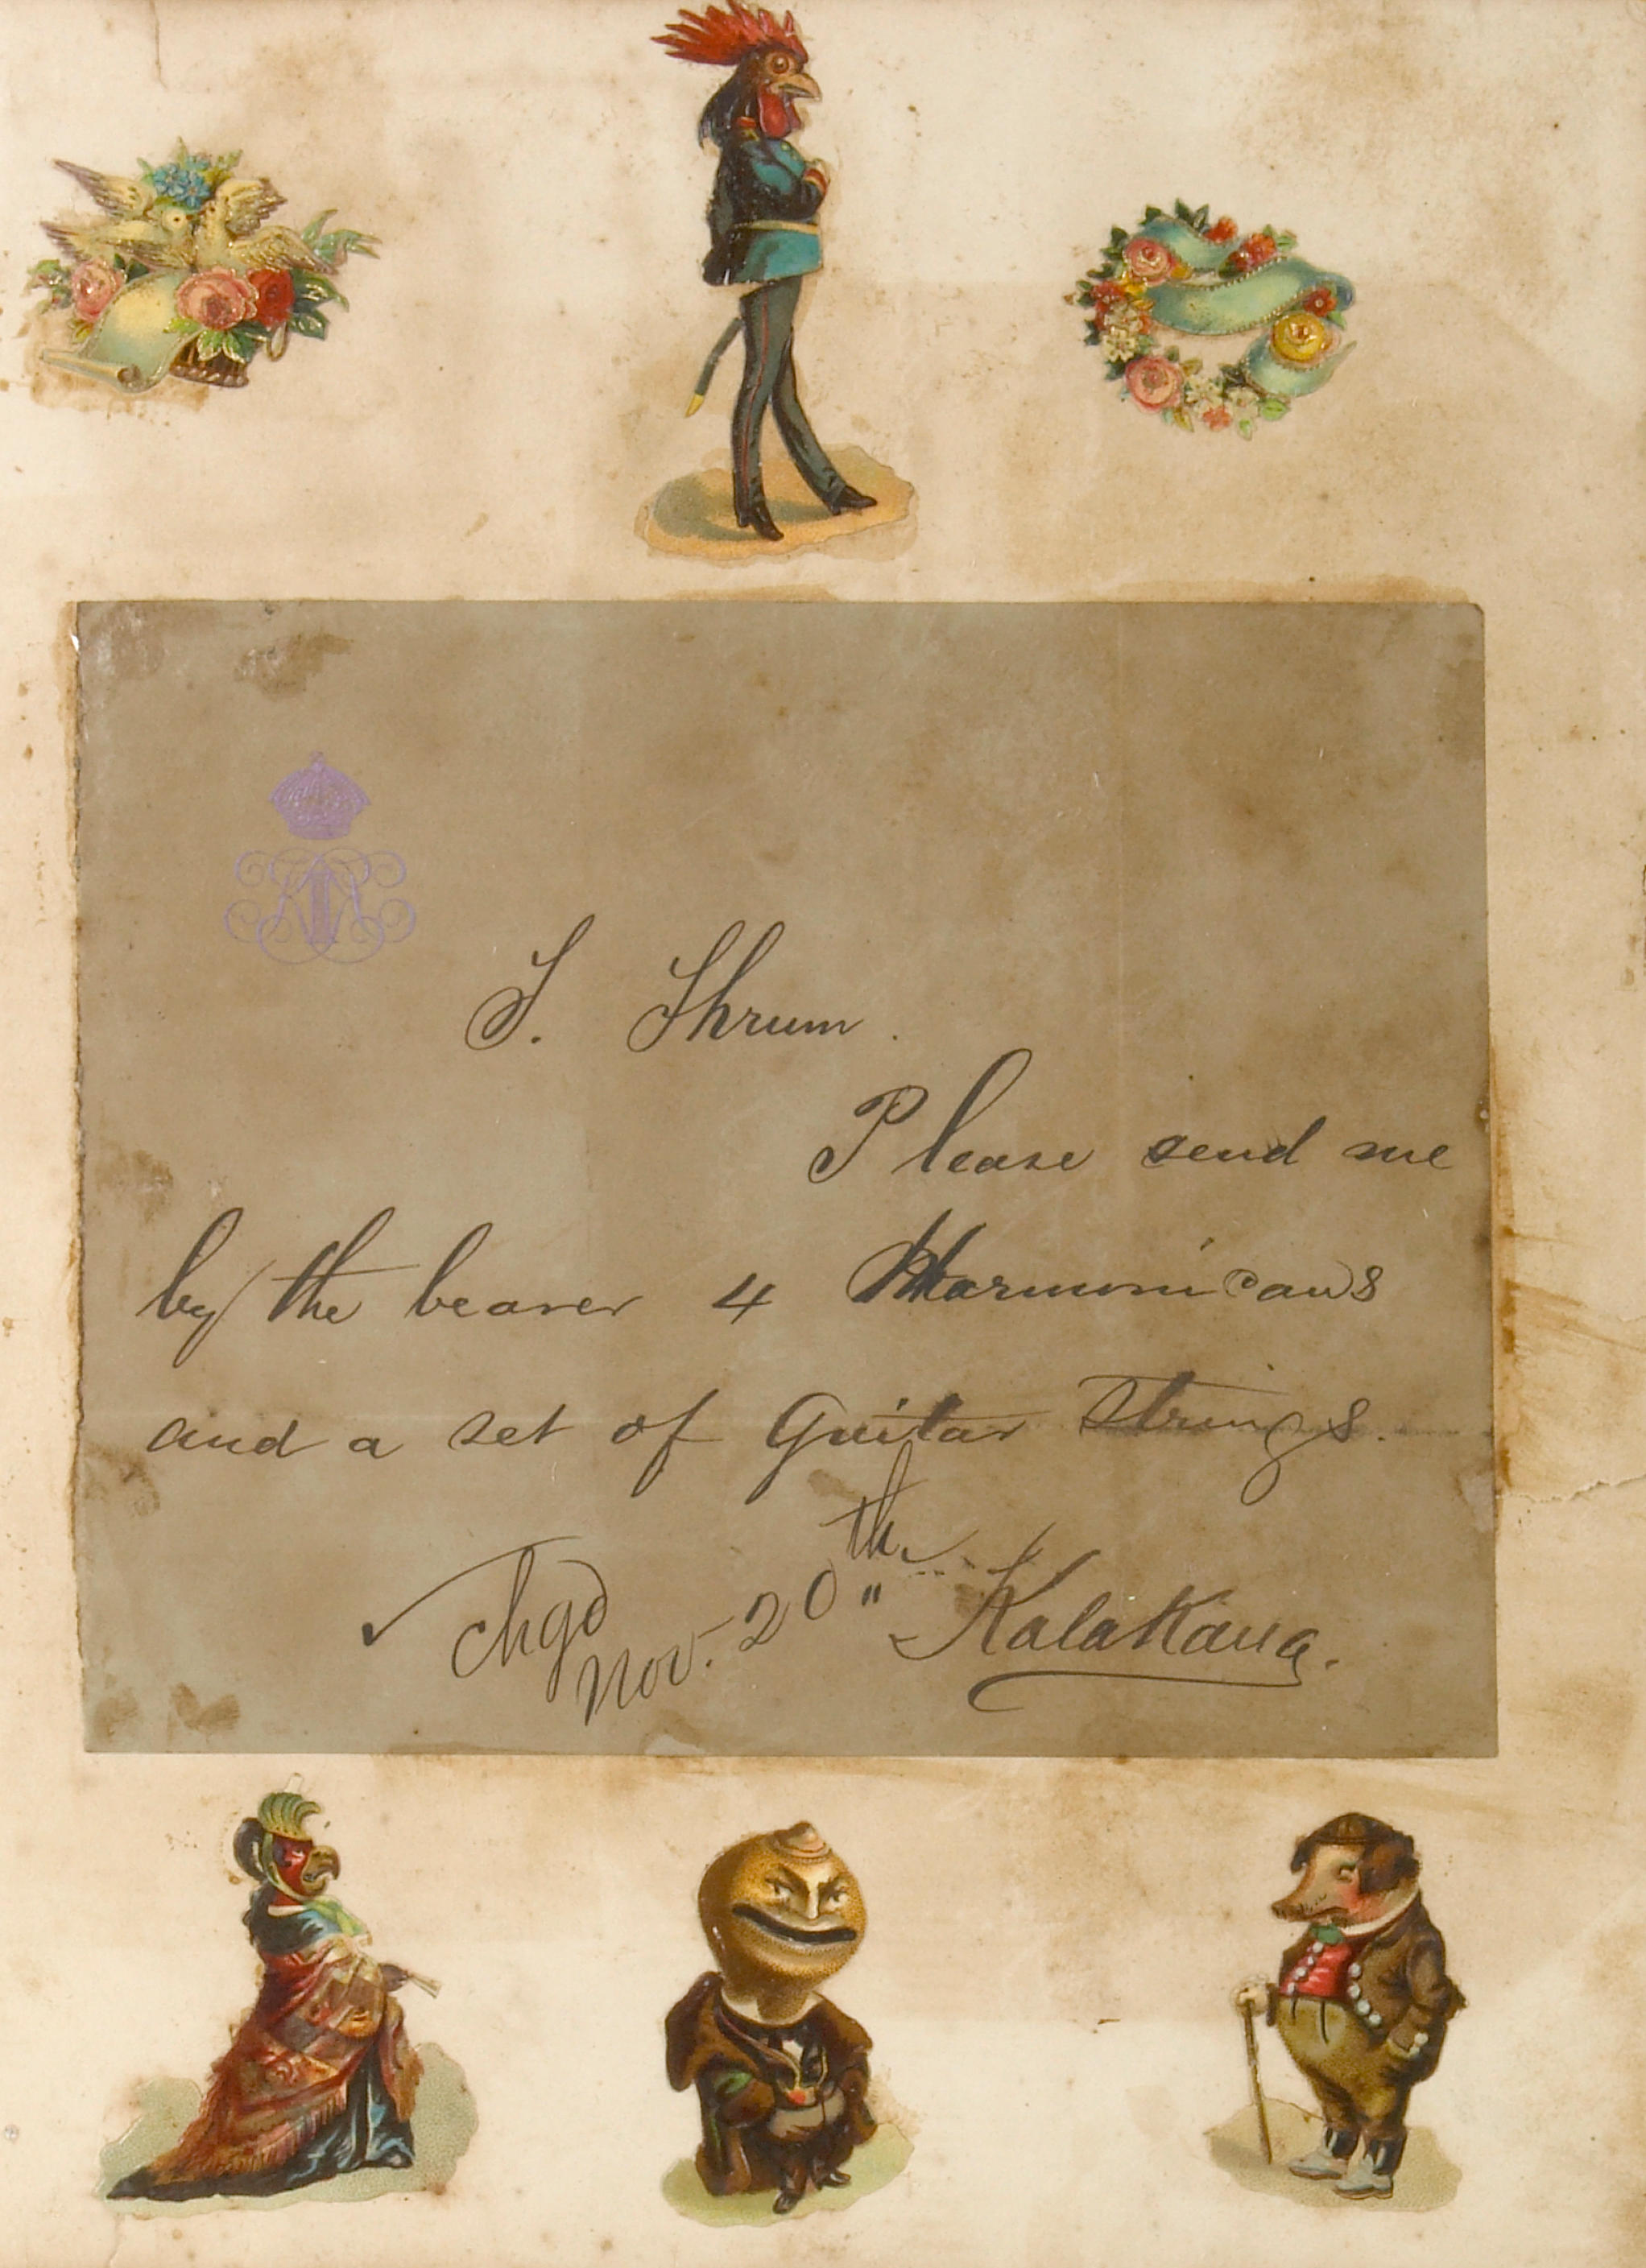 T. Thrum.
Please send me
by the bearer 4 Harmonicans
and a set of Guitar Strings.
Kalakaua.
chgd
Nov. 20th